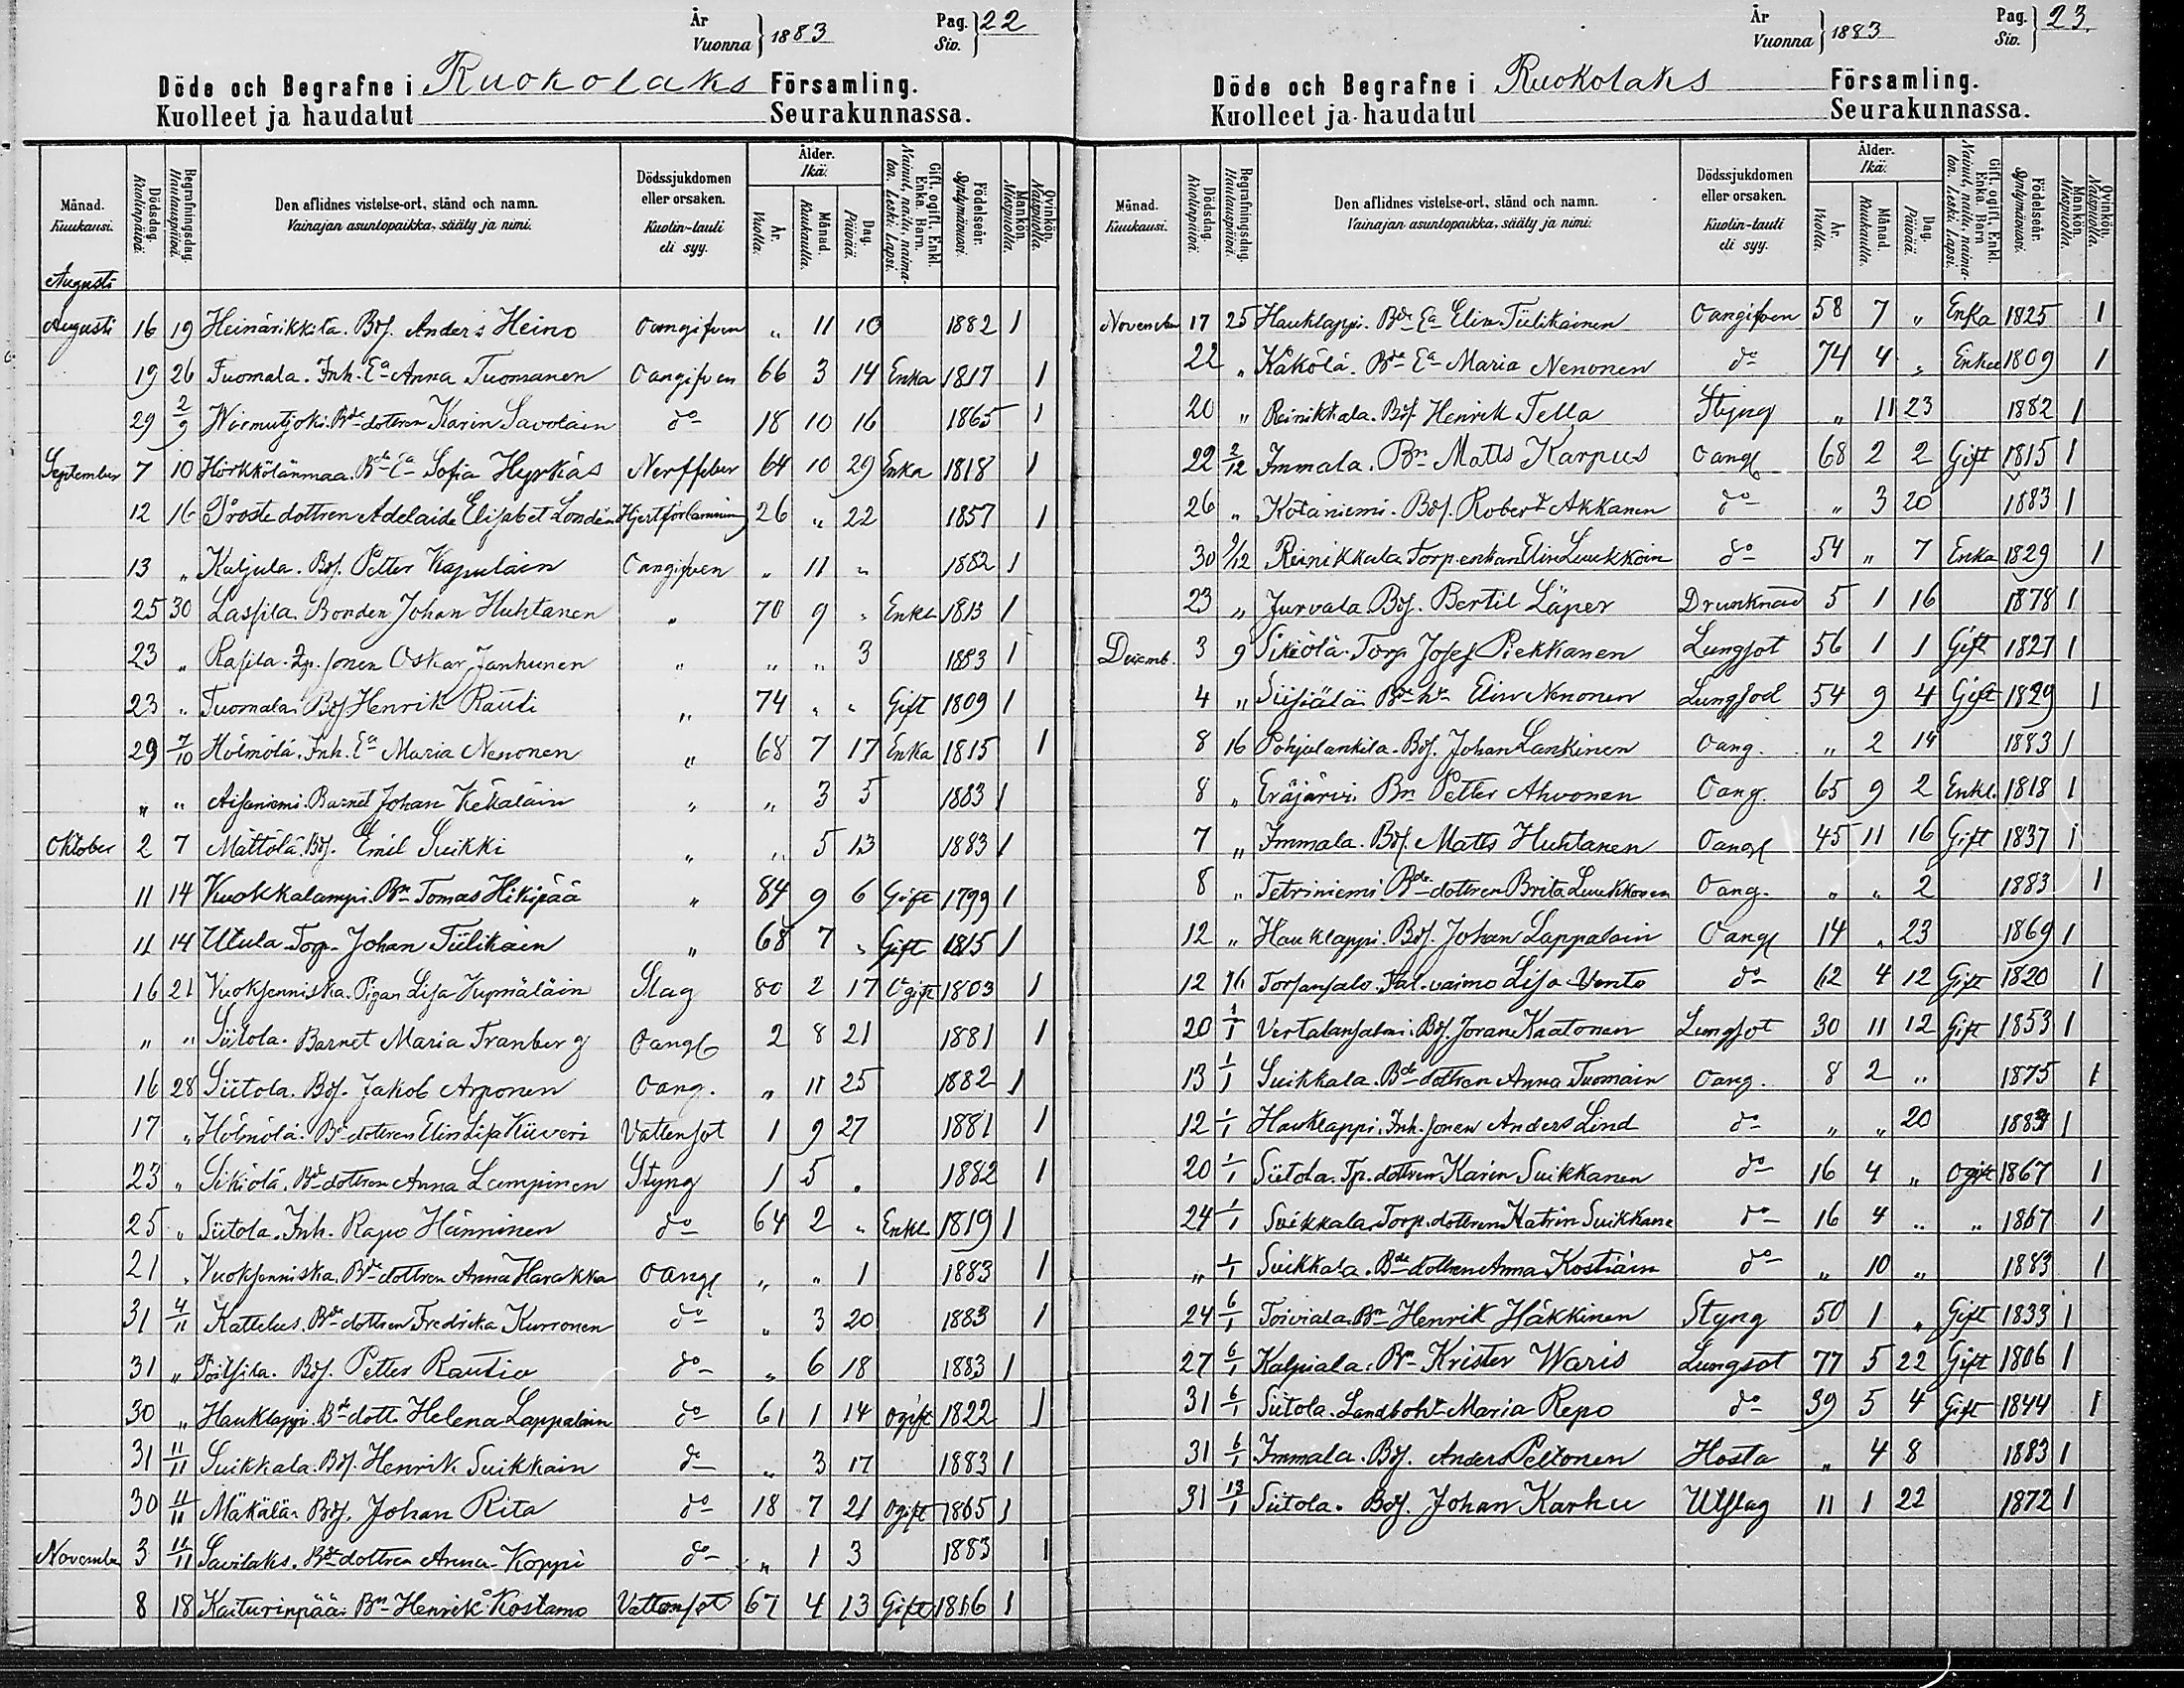 År
Vuonna } 1883
Pag.
Siv. } 22
Döde och Begrafne i Ruokolaks Församling.
Kuolleet ja haudatut Seurakunnassa.
Månad. Kuukausi.
Dödsdag. Kuolinpäivä.
Begrafningsdag. Hautauspäivä.
Den aflidnes vistelse-ort, stånd och namn.
Vainajan asuntopaikka, sääty ja nimi.
Dödssjukdomen eller orsaken.
Kuolin-tauti eli syy.
Ålder. Ikä.
År. Vuotta.
Månad. Kuukautta.
Dag. Päivää.
Gift, ogift, Enkl. Enka, Barn.
Nainut, naitu, naimaton, Leski, Lapsi.
Födelseår. Syntymävuosi.
Mankön. Miespuolia.
Qvinkön. Naispuolia.
Augusti
Augusti 16 19 Heinärikkila. Bdf. Anders Heino Oangifven " 11 10 1882 1
19 26 Tuomala. Inh. Ea Anna Tuomanen Oangifven 66 3 14 Enka 1817 1
29 2/9 Wirmutjoki. Bde dottren Karin Savolain do 18 10 16 1865 1
September 7 10 Hörkkölänmaa. Bde Ea Sofia Hyrkäs Nerffeber 64 10 29 Enka 1818 1
12 16 Proste dottren Adelaide Elisabet Londén Hjertförlamning 26 " 22 1857 1
13 " Kaljula. Bdf. Petter Kapulain Oangifven " 11 " 1882 1
25 30 Lassila. Bonden Johan Huhtanen " 70 9 " Enkl 1813 1
23 " Rasila. Tp. sonen Oskar Janhunen " " " 3 1883 1
23 " Tuomala. Bdf Henrik Rauti " 74 " " Gift 1809 1
29 7/10 Hölmölä. Inh. Ea Maria Nenonen " 68 7 17 Enka 1815 1
" " Aisaniemi. Barnet Johan Kekäläin " " 3 5 1883 1
Oktober 2 7 Mättölä. Bdf. Emil Suikki " " 5 13 1883 1
11 14 Kuokkalampi. Bn Tomas Hikipää " 84 9 6 Gift 1799 1
11 14 Utula. Torp. Johan Tiilikain " 68 7 " Gift 1815 1
16 21 Vuoksenniska. Pigan Lisa Kupiäläin Slag 80 2 17 Ogift 1803 1
" " Siitola. Barnet Maria Tranberg Oangf 2 8 21 1881 1
16 28 Siitola. Bdf. Jakob Arponen Oang. " 11 25 1882 1
17 " Hölmölä. Bde dottren Elin Lisa Kiiveri Vattensot 1 9 27 1881 1
23 " Sikiölä. Bde dottren Anna Lempinen Styng 1 5 " 1882 1
25 " Siitola. Inh. Rapo Hänninen do 64 2 " Enkl 1819 1
21 " Vuoksenniska. Bde dottren Anna Harakka Oangf " " 1 1883 1
31 4/11 Kattelus. Bde dottren Fredrika Kurronen do " 3 20 1883 1
31 " Bdf. Petter Rautio do " 6 18 1883 1
30 " Hauklappi. Bde dott. Helena Lappalain do 61 1 14 Ogift 1822 1
31 11/11 Suikkala. Bdf. Henrik Suikkain do " 3 17 1883 1
30 11/11 Mäkälä. Bdf. Johan Rita do 18 7 21 Ogift 1865 1
November 3 11/11 Savilaks. Bde dottren Anna Koppi do " 1 3 1883 1
8 18 Kaiturinpää. Bn Henrik Kostamo Vattensot 67 4 13 Gift 1816 1
År
Vuonna } 1883
Pag.
Siv. } 23.
Döde och Begrafne i Ruokolaks Församling.
Kuolleet ja haudatut Seurakunnassa.
Månad. Kuukausi.
Dödsdag. Kuolinpäivä.
Begrafningsdag. Hautauspäivä.
Den aflidnes vistelse-ort, stånd och namn.
Vainajan asuntopaikka, sääty ja nimi.
Dödssjukdomen eller orsaken.
Kuolin-tauti eli syy.
Ålder. Ikä.
År. Vuotta.
Månad. Kuukautta.
Dag. Päivää.
Gift, ogift, Enkl. Enka, Barn
Nainut, naitu, naimaton, Leski, Lapsi.
Födelseår. Syntymävuosi.
Mankön. Miespuolia.
Qvinkön. Naispuolia.
November 17 25 Hauklappi. Bde Ea Elin Tiilikainen Oangifven 58 7 " Enka 1825 1
22 " Käkölä. Bde Ea Maria Nenonen do 74 4 " Enka 1809 1
20 " Reinikkala. Bdf. Henrik Tella Styng " 11 23 1882 1
22 2/12 Immala. Bn Matts Karpus Oangf 68 2 2 Gift 1815 1
26 " Kotaniemi. Bdf. Robert Akkanen do " 3 20 1883 1
30 9/12 Reinikkala Torp. enkan Elin Luukkoin do 54 " 7 Enka 1829 1
23 " Jurvala Bdf. Bertil Läper Drunknad 5 1 16 1878 1
Decemb. 3 9 Sikiölä. Torp Josef Piekkanen Lungsot 56 1 1 Gift 1827 1
4 " Siisiälä Bde h. Elin Nenonen Lungsot 54 9 4 Gift 1829 1
8 16 Pohjalankila. Bdf. Johan Lankinen Oang. " 2 14 1883 1
8 " Eräjärvi. Bn Petter Ahvonen Oang. 65 9 2 Enkl. 1818 1
7 " Immala. Bdf. Matts Huhtanen Oangf 45 11 16 Gift 1837 1
8 " Tetriniemi Bde dottren Brita Luukkonen Oang. " " 2 1883 1
12 " Hauklappi. Bdf. Johan Lappalain Oangf 14 " 23 1869 1
12 16 Torsansalo. Tal. vaimo Lisa Vento do 62 4 12 Gift 1820 1
20 1/1 Vertalansalmi. Bdf. Joran Kaatonen Lungsot 30 11 12 Gift 1853 1
13 1/1 Suikkala. Bde dottren Anna Tuomain Oang. 8 2 " 1875 1
12 1/1 Hauklappi. Inh. sonen Anders Lind do " " 20 1883 1
20 1/1 Siitola. Tp. dottren Karin Suikkanen do 16 4 " Ogift 1867 1
24 1/1 Suikkala. Torp. dottren Katrin Suikkane do 16 4 " " 1867 1
" 1/1 Suikkala. Bde dottren Anna Kostiain do " 10 " 1883 1
24 6/1 Toiviala. Bn Henrik Häkkinen Styng 50 1 " Gift 1833 1
27 6/1 Kalpiala. Bn Krister Waris Lungsot 77 5 22 Gift 1806 1
31 6/1 Siitola. Landboh. Maria Repo do 39 5 4 Gift 1844 1
31 6/1 Immala. Bdf. Anders Peltonen Hosta " 4 8 1883 1
31 13/1 Siitola. Bdf. Johan Karhu Utslag 11 1 22 1872 1